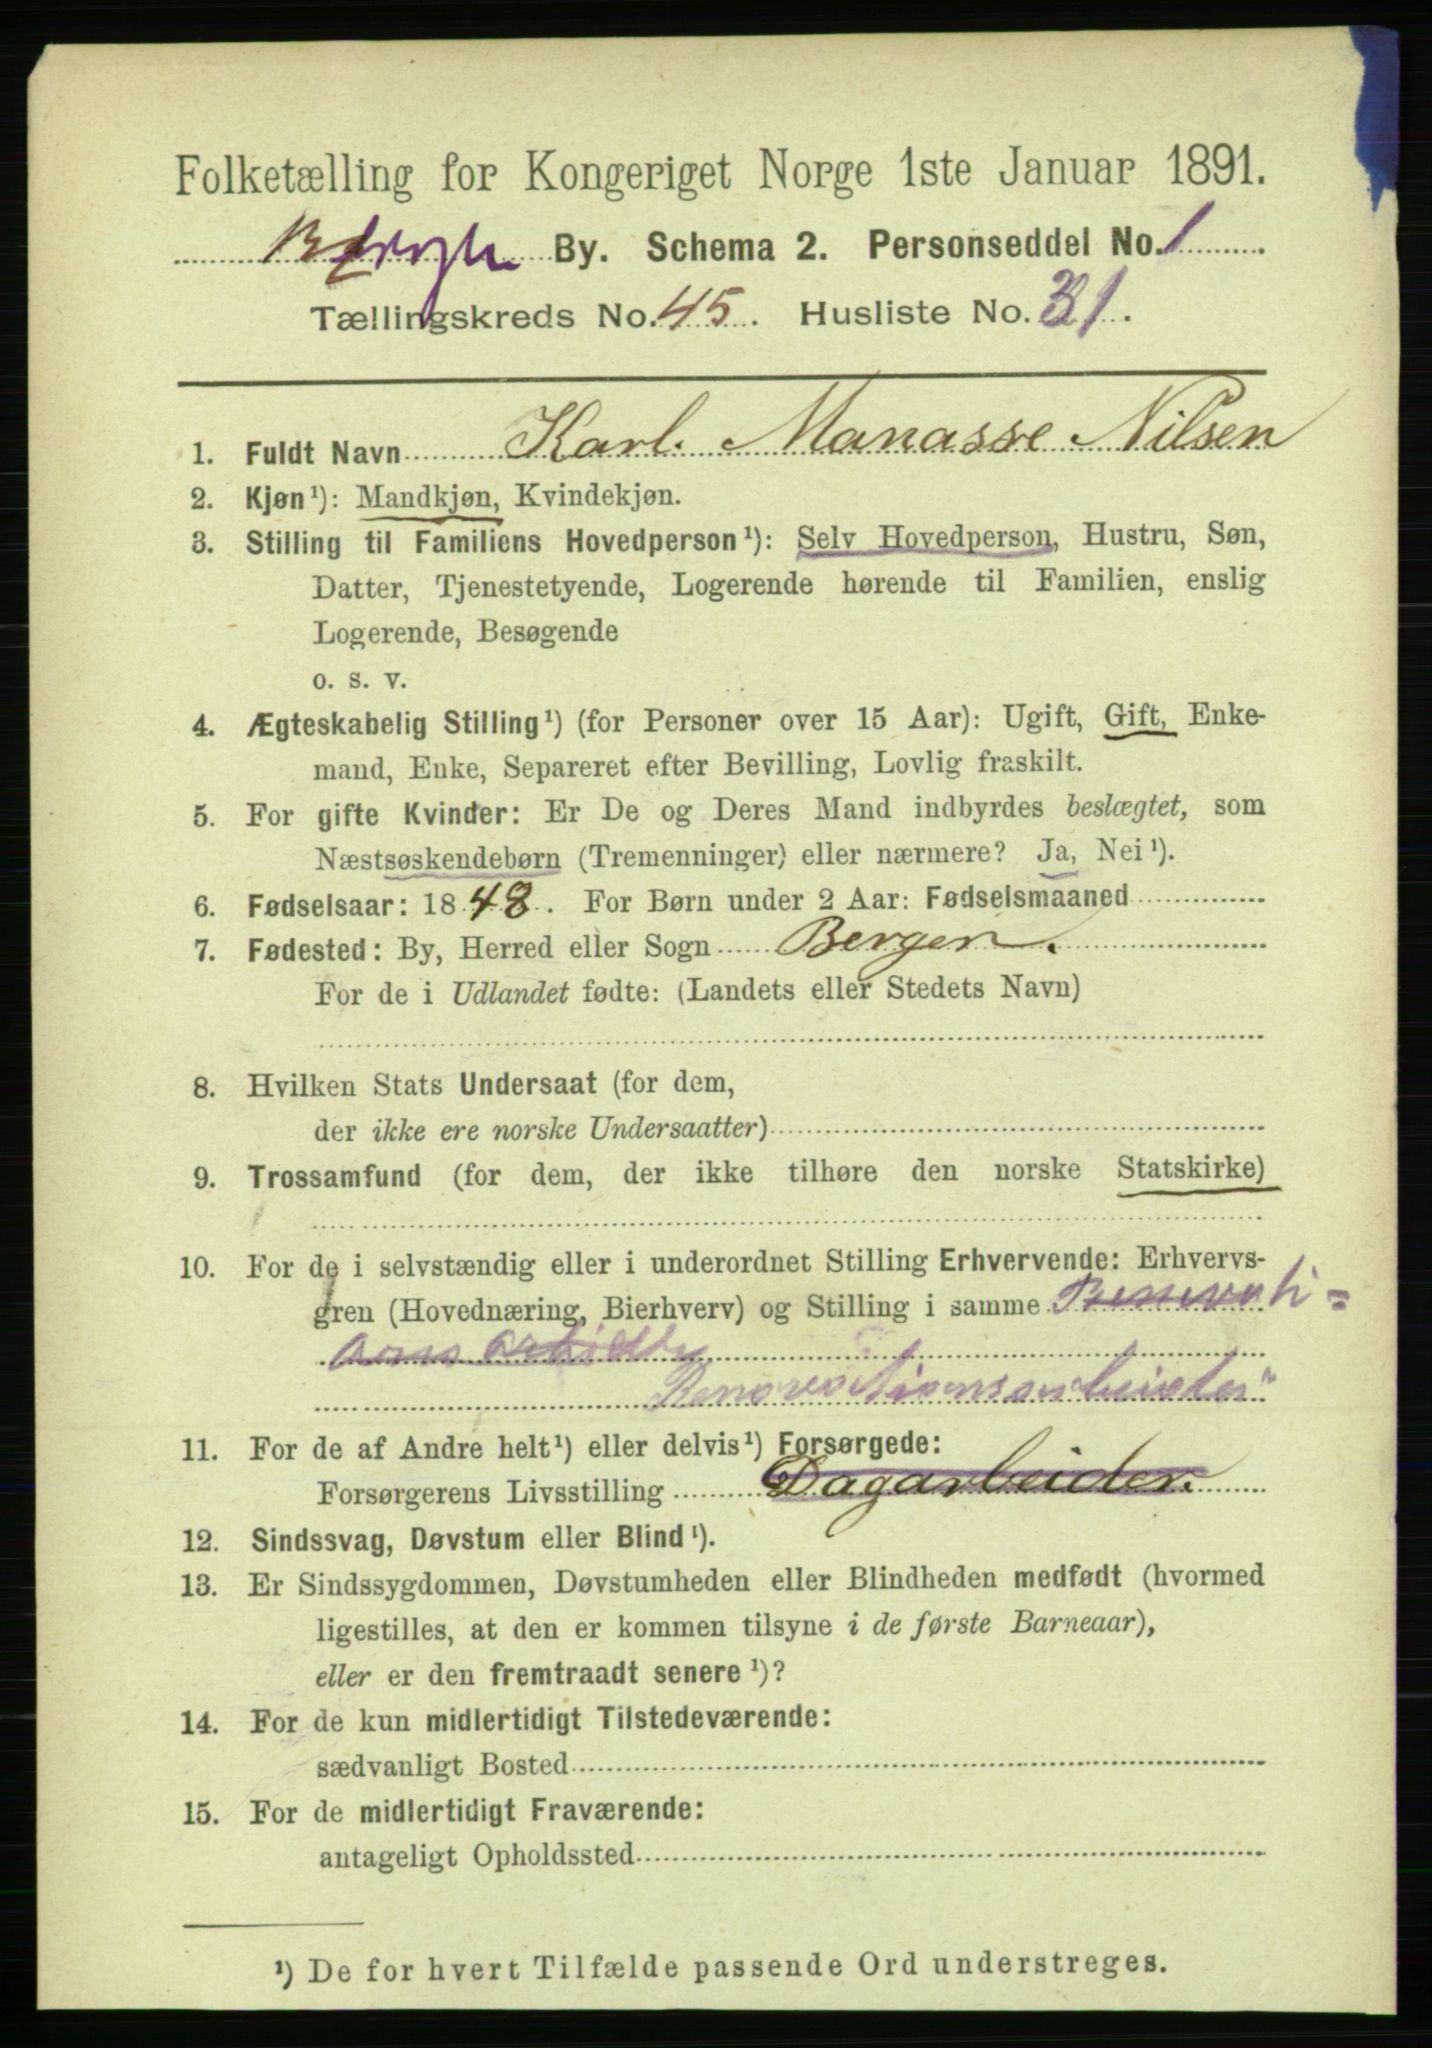 Folketælling for Kongeriget Norge 1ste Januar 1891.
Bergen By. Schema 2. Personseddel No. 1
Tællingskreds No. 45. Husliste No. 31.
1. Fuldt Navn Karl. Manasse Nilsen
2. Kjøn¹): Mandkjøn, Kvindekjøn.
3. Stilling til Familiens Hovedperson¹): Selv Hovedperson, Hustru, Søn,
Datter, Tjenestetyende, Logerende hørende til Familien, enslig
Logerende, Besøgende
o. s. v.
4. Ægteskabelig Stilling¹) (for Personer over 15 Aar): Ugift, Gift, Enke-
mand, Enke, Separeret efter Bevilling, Lovlig fraskilt.
5. For gifte Kvinder: Er De og Deres Mand indbyrdes beslægtet, som
Næstsøskendebørn (Tremenninger) eller nærmere? Ja, Nei¹).
6. Fødselsaar: 1848. For Børn under 2 Aar: Fødselsmaaned
7. Fødested: By, Herred eller Sogn Bergen.
For de i Udlandet fødte: (Landets eller Stedets Navn)
8. Hvilken Stats Undersaat (for dem,
der ikke ere norske Undersaatter)
9. Trossamfund (for dem, der ikke tilhøre den norske Statskirke)
10. For de i selvstændig eller i underordnet Stilling Erhvervende: Erhvervs-
gren (Hovednæring, Bierhverv) og Stilling i samme
Renovationsarbeider
11. For de af Andre helt¹) eller delvis¹) Forsørgede:
Forsørgerens Livsstilling Dagarbeider.
12. Sindssvag, Døvstum eller Blind¹).
13. Er Sindssygdommen, Døvstumheden eller Blindheden medfødt (hvormed
ligestilles, at den er kommen tilsyne i de første Barneaar),
eller er den fremtraadt senere¹)?
14. For de kun midlertidigt Tilstedeværende:
sædvanligt Bosted
15. For de midlertidigt Fraværende:
antageligt Opholdssted
¹) De for hvert Tilfælde passende Ord understreges.